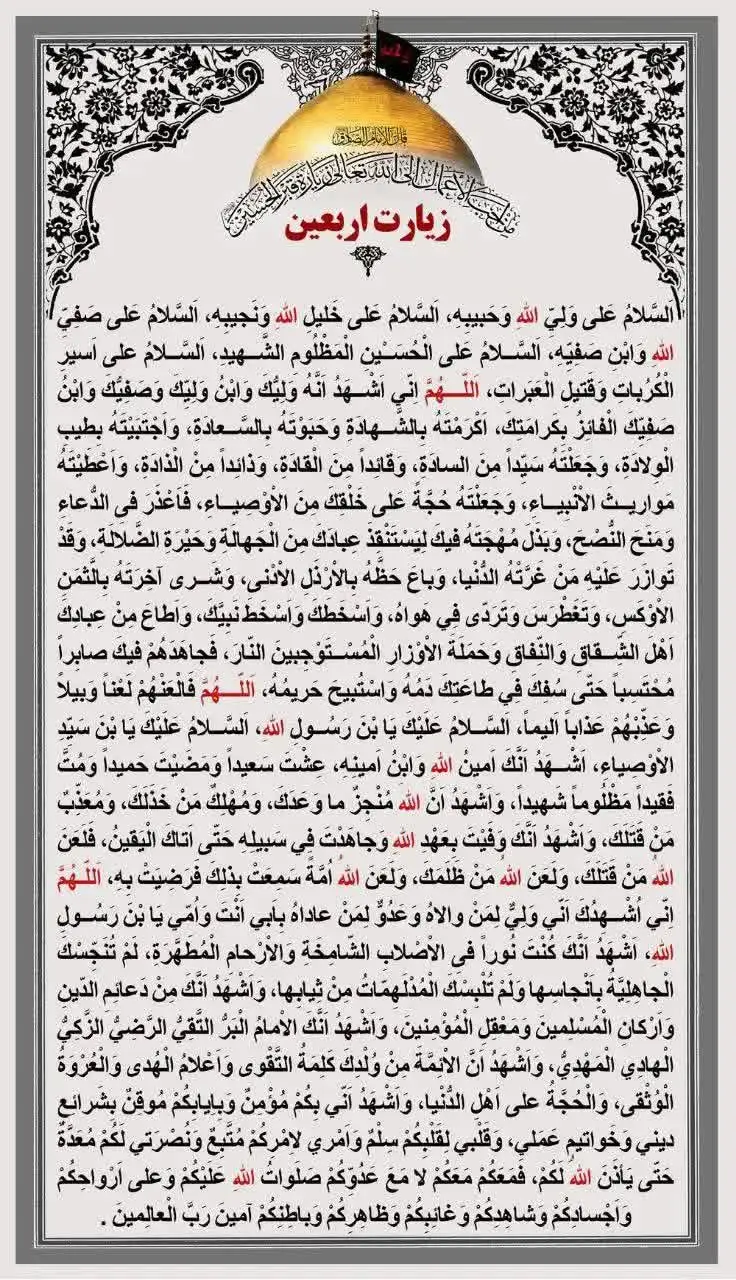 قال الإمام الصادق
من أحب الأعمال إلى الله تعالى زيارة قبر الحسين
زیارت اربعین
اَلسَّلامُ عَلى وَلِيِّ اللهِ وَحَبيبِهِ، اَلسَّلامُ عَلى خَليلِ اللهِ وَنَجيبِهِ، اَلسَّلامُ عَلى صَفِيِّ
اللهِ وَابْنِ صَفِيِّهِ، اَلسَّلامُ عَلى الْحُسَيْنِ الْمَظْلُومِ الشَّهيدِ، اَلسَّلامُ على اَسيرِ
الْكُرُباتِ وَقَتيلِ الْعَبَراتِ، اَللّـهُمَّ اِنّي اَشْهَدُ اَنَّهُ وَلِيُّكَ وَابْنُ وَلِيِّكَ وَصَفِيُّكَ وَابْنُ
صَفِيِّكَ الْفائِزُ بِكَرامَتِكَ، اَكْرَمْتَهُ بِالشَّهادَةِ وَحَبَوْتَهُ بِالسَّعادَةِ، وَاَجْتَبَيْتَهُ بِطيبِ
الْوِلادَةِ، وَجَعَلْتَهُ سَيِّداً مِنَ السادَةِ، وَقائِداً مِنَ الْقادَةِ، وَذائِداً مِنْ الْذادَةِ، وَاَعْطَيْتَهُ
مَواريثَ الاَْنْبِياءِ، وَجَعَلْتَهُ حُجَّةً عَلى خَلْقِكَ مِنَ الاَْوْصِياءِ، فَاَعْذَرَ فىِ الدُّعاءِ
وَمَنَحَ النُّصْحَ، وَبَذَلَ مُهْجَتَهُ فيكَ لِيَسْتَنْقِذَ عِبادَكَ مِنَ الْجَهالَةِ وَحَيْرَةِ الضَّلالَةِ، وَقَدْ
تَوازَرَ عَلَيْهِ مَنْ غَرَّتْهُ الدُّنْيا، وَباعَ حَظَّهُ بِالاَْرْذَلِ الاَْدْنى، وَشَرى آخِرَتَهُ بِالَّثمَنِ
الاَْوْكَسِ، وَتَغَطْرَسَ وَتَرَدّى فِي هَواهُ، وَاَسْخَطَكَ وَاَسْخَطَ نَبِيَّكَ، وَاَطاعَ مِنْ عِبادِكَ
اَهْلَ الشِّقاقِ وَالنِّفاقِ وَحَمَلَةَ الاَْوْزارِ الْمُسْتَوْجِبينَ النّارَ، فَجاهَدَهُمْ فيكَ صابِراً
مُحْتَسِباً حَتّى سُفِكَ في طاعَتِكَ دَمُهُ وَاسْتُبيحَ حَريمُهُ، اَللّـهُمَّ فَالْعَنْهُمْ لَعْناً وَبيلاً
وَعَذِّبْهُمْ عَذاباً اَليماً، اَلسَّلامُ عَلَيْكَ يَا بْنَ رَسُولِ اللهِ، اَلسَّلامُ عَلَيْكَ يَا بْنَ سَيِّدِ
الاَْوْصِياءِ، اَشْهَدُ اَنَّكَ اَمينُ اللهِ وَابْنُ اَمينِهِ، عِشْتَ سَعيداً وَمَضَيْتَ حَميداً وَمُتَّ
فَقيداً مَظْلُوماً شَهيداً، وَاَشْهَدُ اَنَّ اللهَ مُنْجِزٌ ما وَعَدَكَ، وَمُهْلِكٌ مَنْ خَذَلَكَ، وَمُعَذِّبٌ
مَنْ قَتَلَكَ، وَاَشْهَدُ اَنَّكَ وَفَيْتَ بِعَهْدِ اللهِ وَجاهَدْتَ فِي سَبيلِهِ حَتّى اَتاكَ الْيَقينُ، فَلَعَنَ
اللهُ مَنْ قَتَلَكَ، وَلَعَنَ اللهُ مَنْ ظَلَمَكَ، وَلَعَنَ اللهُ اُمَّةً سَمِعَتْ بِذلِكَ فَرَضِيَتْ بِهِ، اَللّـهُمَّ
اِنّي اُشْهِدُكَ اَنّي وَلِيٌّ لِمَنْ والاهُ وَعَدُوٌّ لِمَنْ عاداهُ بِاَبي اَنْتَ وَاُمّي يَا بْنَ رَسُولِ
اللهِ، اَشْهَدُ اَنَّكَ كُنْتَ نُوراً فىِ الاَْصْلابِ الشّامِخَةِ وَالاَْرْحامِ الْمُطَهَّرَةِ، لَمْ تُنَجِّسْكَ
الْجاهِلِيَّةُ بِاَنْجاسِها وَلَمْ تُلْبِسْكَ الْمُدْلَهِمّاتُ مِنْ ثِيابِها، وَاَشْهَدُ اَنَّكَ مِنْ دَعائِمِ الدّينِ
وَاَرْكانِ الْمُسْلِمينَ وَمَعْقِلِ الْمُؤْمِنينَ، وَاَشْهَدُ اَنَّكَ الاِْمامُ الْبَرُّ التَّقِيُّ الرَّضِيُّ الزَّكِيُّ
الْهادِي الْمَهْدِيُّ، وَاَشْهَدُ اَنَّ الاَْئِمَّةَ مِنْ وُلْدِكَ كَلِمَةُ التَّقْوى وَاَعْلامُ الْهُدى وَالْعُرْوَةُ
الْوُثْقى، وَالْحُجَّةُ على اَهْلِ الدُّنْيا، وَاَشْهَدُ اَنّي بِكُمْ مُؤْمِنٌ وَبِاِيابِكُمْ مُوقِنٌ بِشَرائِعِ
ديني وَخَواتيمِ عَمَلي، وَقَلْبي لِقَلْبِكُمْ سِلْمٌ وَاَمْري لاَِمْرِكُمْ مُتَّبِعٌ وَنُصْرَتي لَكُمْ مُعَدَّةٌ
حَتّى يَأذَنَ اللهُ لَكُمْ، فَمَعَكُمْ مَعَكُمْ لا مَعَ عَدُوِّكُمْ صَلَواتُ اللهِ عَلَيْكُمْ وَعلى اَرْواحِكُمْ
وَاَجْسادِكُمْ وَشاهِدِكُمْ وَغائِبِكُمْ وَظاهِرِكُمْ وَباطِنِكُمْ آمينَ رَبَّ الْعالِمينَ .